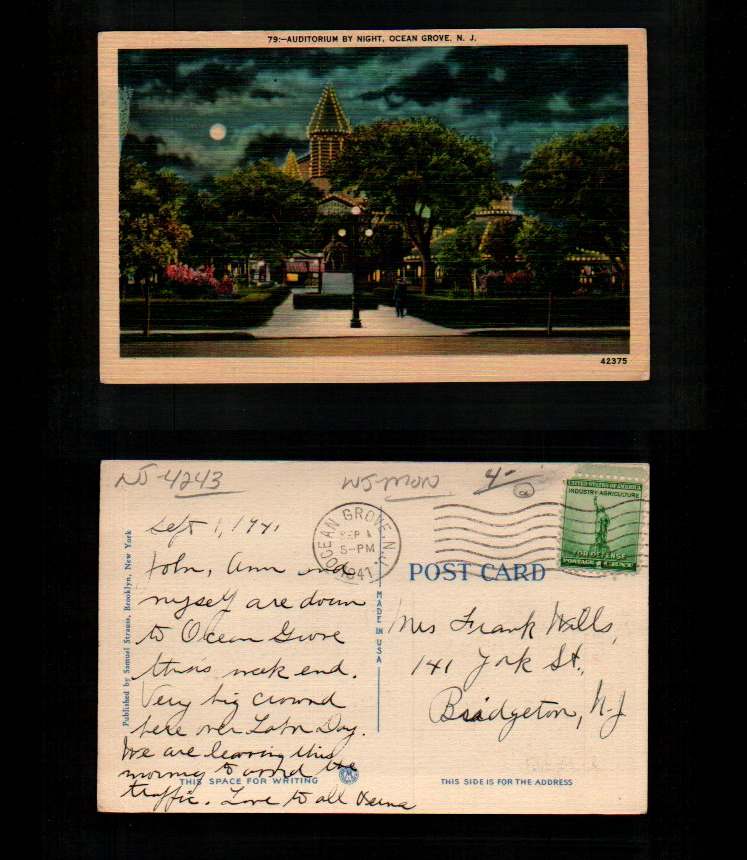 79:—AUDITORIUM BY NIGHT, OCEAN GROVE, N. J.
42375
NJ-4243
NJ-MON
4-
Sept 1, 1941
John, Ann and
myself are down
to Ocean Grove
this week end.
Very big crowd
here over Labor Day.
We are leaving this
morning to avoid the
traffic. Love to all Verna
OCEAN GROVE, N.J.
SEP 1
5-PM
1941
UNITED STATES OF AMERICA
INDUSTRY AGRICULTURE
FOR DEFENSE
POSTAGE 1 CENT
POST CARD
Mrs Frank Wills,
141 York St.,
Bridgeton, N-J
Published by Samuel Strauss, Brooklyn, New York
MADE IN USA
THIS SPACE FOR WRITING
THIS SIDE IS FOR THE ADDRESS